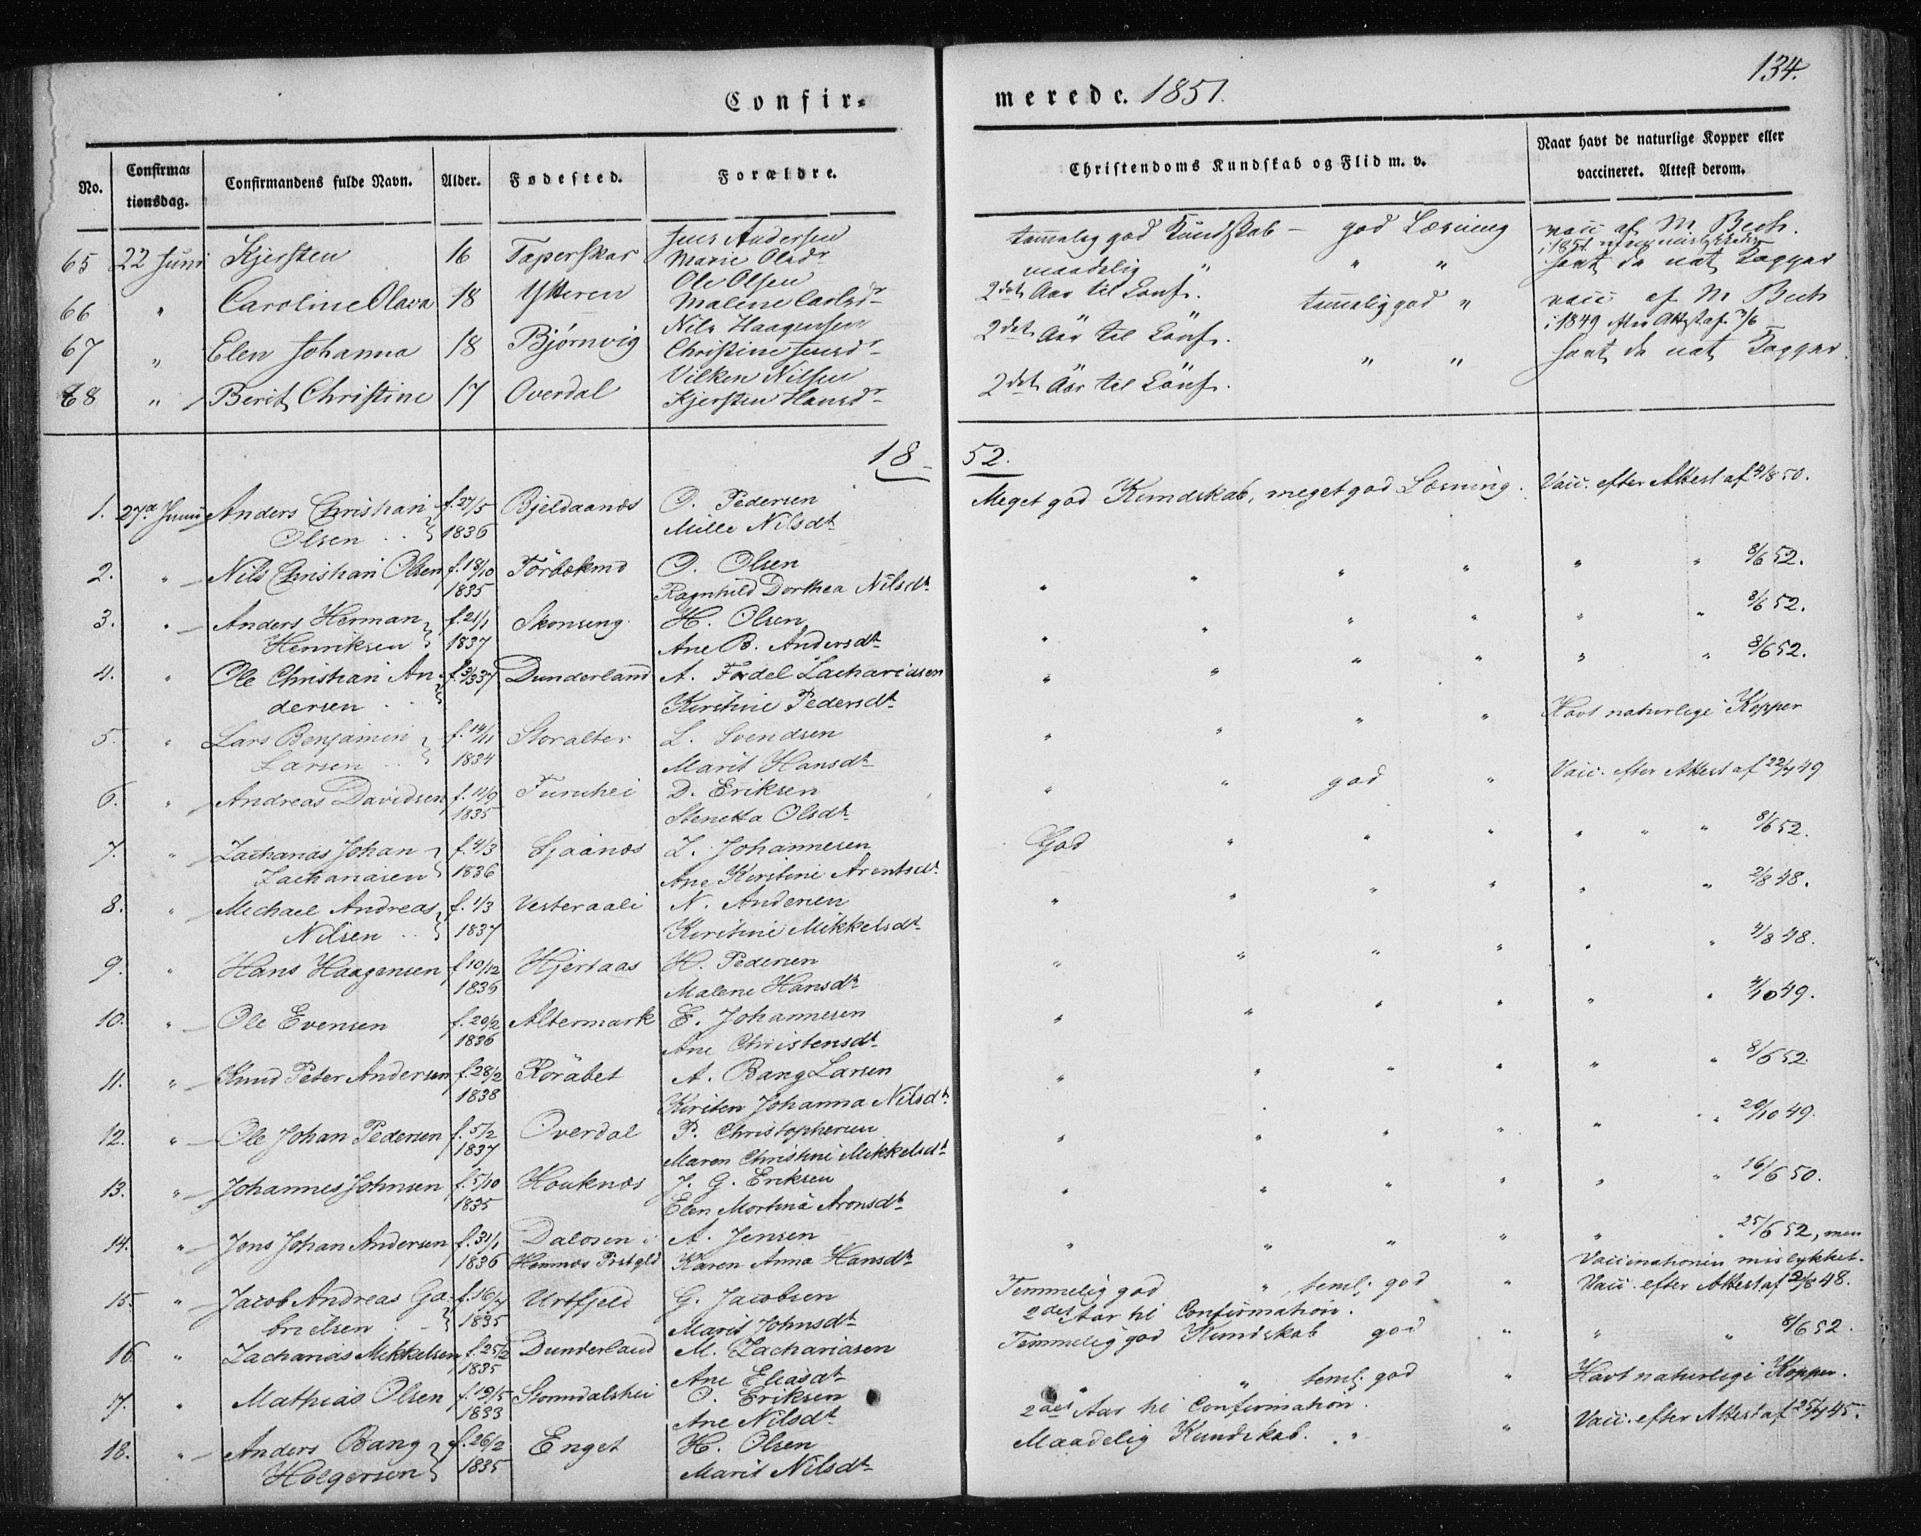 134.
Confir- merede. 1851.
No. Confirmationsdag. Confirmandens fulde Navn. Alder. Fødested. Forældre. Christendoms Kundskab og Flid m. v. Naar havt de naturlige Kopper eller vaccineret. Attest derom.
65 22 Juni Kjersten 16 Taperskar Jens Andersen tammelig god Kundskab – god Læsning vacc af M Bech.
Marie Olsdr maadelig " " " havt de nat Kopper
66 " Caroline Olava 18 Ytteren Ole Olsen 2det Aar til Conf. tammelig god " vacc af M Bech
Malene Carlsdr i 1849 efter Attest af
67 " Elen Johanna 18 Bjørnvig Nils Haagensen 2det Aar til Conf.
Christine Jensdr " " havt de nat Kopper.
68 " Berit Christine 17 Overdal Vilken Nilsen 2det Aar til Conf.
Kjersten Hansdr
18 52.
1. 27de Juni Anders Christian f. 27/5 Bjeldaanæs O. Pedersen Meget god Kundskab, meget god Læsning. Vacc. efter Attest af 4/8 50.
Olsen 1836 Mille Nilsdt
2. " Nils Christian Olsen f. 18/10 Förbækmo O. Olsen " " " " " " 8/6 52.
1835 Ragnhild Dorthea Nilsdt
3. " Anders Herman f. 21/1 Skonseng H. Olsen " " " " " " 8/6 52.
Henriksen 1837 Ane B. Andersdt
4. " Ole Christian An- f. 3/3 37 Dunderland A. Fordel Zachariasen " " " " " " 8/6 52.
dersen Kirstine Pedersdt
5. " Lars Benjamin f. 14/11 Storalter L. Svendsen " " " " Havt naturlige Kopper
Larsen 1834 Marit Hansdt
6. " Andreas Davidsen f. 11/9 Furuhei D. Eriksen " " god " Vacc. efter Attest af 22/7 49
1835 Stenetta Olsdt
7. " Zacharias Johan f. 4/3 Sjaanæs Z. Johannesen God " " " " " " 8/6 52.
Zachariasen 1836 Ane Kirstine Arentsdt
8. " Michael Andreas f. 1/3 Vesteraali N. Andersen " " " " " " 2/8 48.
Nilsen 1837 Kirstine Mikkelsdt
9. " Hans Haagensen f. 10/12 Hjertaas H. Pedersen " " " " " " 4/8 48.
1836 Malene Hansdt
10. " Ole Evensen f. 20/2 Altermark E. Johannesen " " " " " " 4/10 49.
1836 Ane Christensdt
11. " Knud Peter Andersen f. 28/2 Röråbet A. Bang Larsen " " " " " " 8/6 52
1838 Kirsten Johanna Nilsdt
12. " Ole Johan Pedersen f. 5/2 Overdal P. Christophersen " " " " " " 20/10 49.
1837 Maren Christine Mikkelsdt
13. " Johannes Johnsen f. 5/10 Houknæs J. G. Eriksen " " " " " " 16/6 50.
1835 Elen Mortina Aronsdt
14. " Jens Johan Andersen f. 31/1 Dalosen i A. Jensen " " " " " " 25/6 52, men
1836 Hemnæs Præstgld Karen Anna Hansdt Vaccinationen mislykket.
15. " Jacob Andreas Ga- f. 16/7 Urtfjeld G. Jacobsen Temmelig god " , teml: god " Vacc. efter Attest af 2/8 48.
brielsen 1835 Marit Johnsdt 2det Aar til Confirmation.
16. " Zacharias Mikkelsen f. 25/2 Dunderland M. Zachariasen Temmelig god Kundskab god " " " 8/6 52.
1835 Ane Eliasdt
17. " Mathias Olsen f. 19/5 Stormdalshei O. Eriksen " " teml: god " Havt naturlige Kopper.
1833 Ane Nilsdt 2det Aar til Confirmation.
18. " Anders Bang f. 26/2 Enget H. Olsen Maadelig Kundskab. " " Vacc. efter Attest af 25/7 45.
Holgersen 1835 Marit Nilsdt